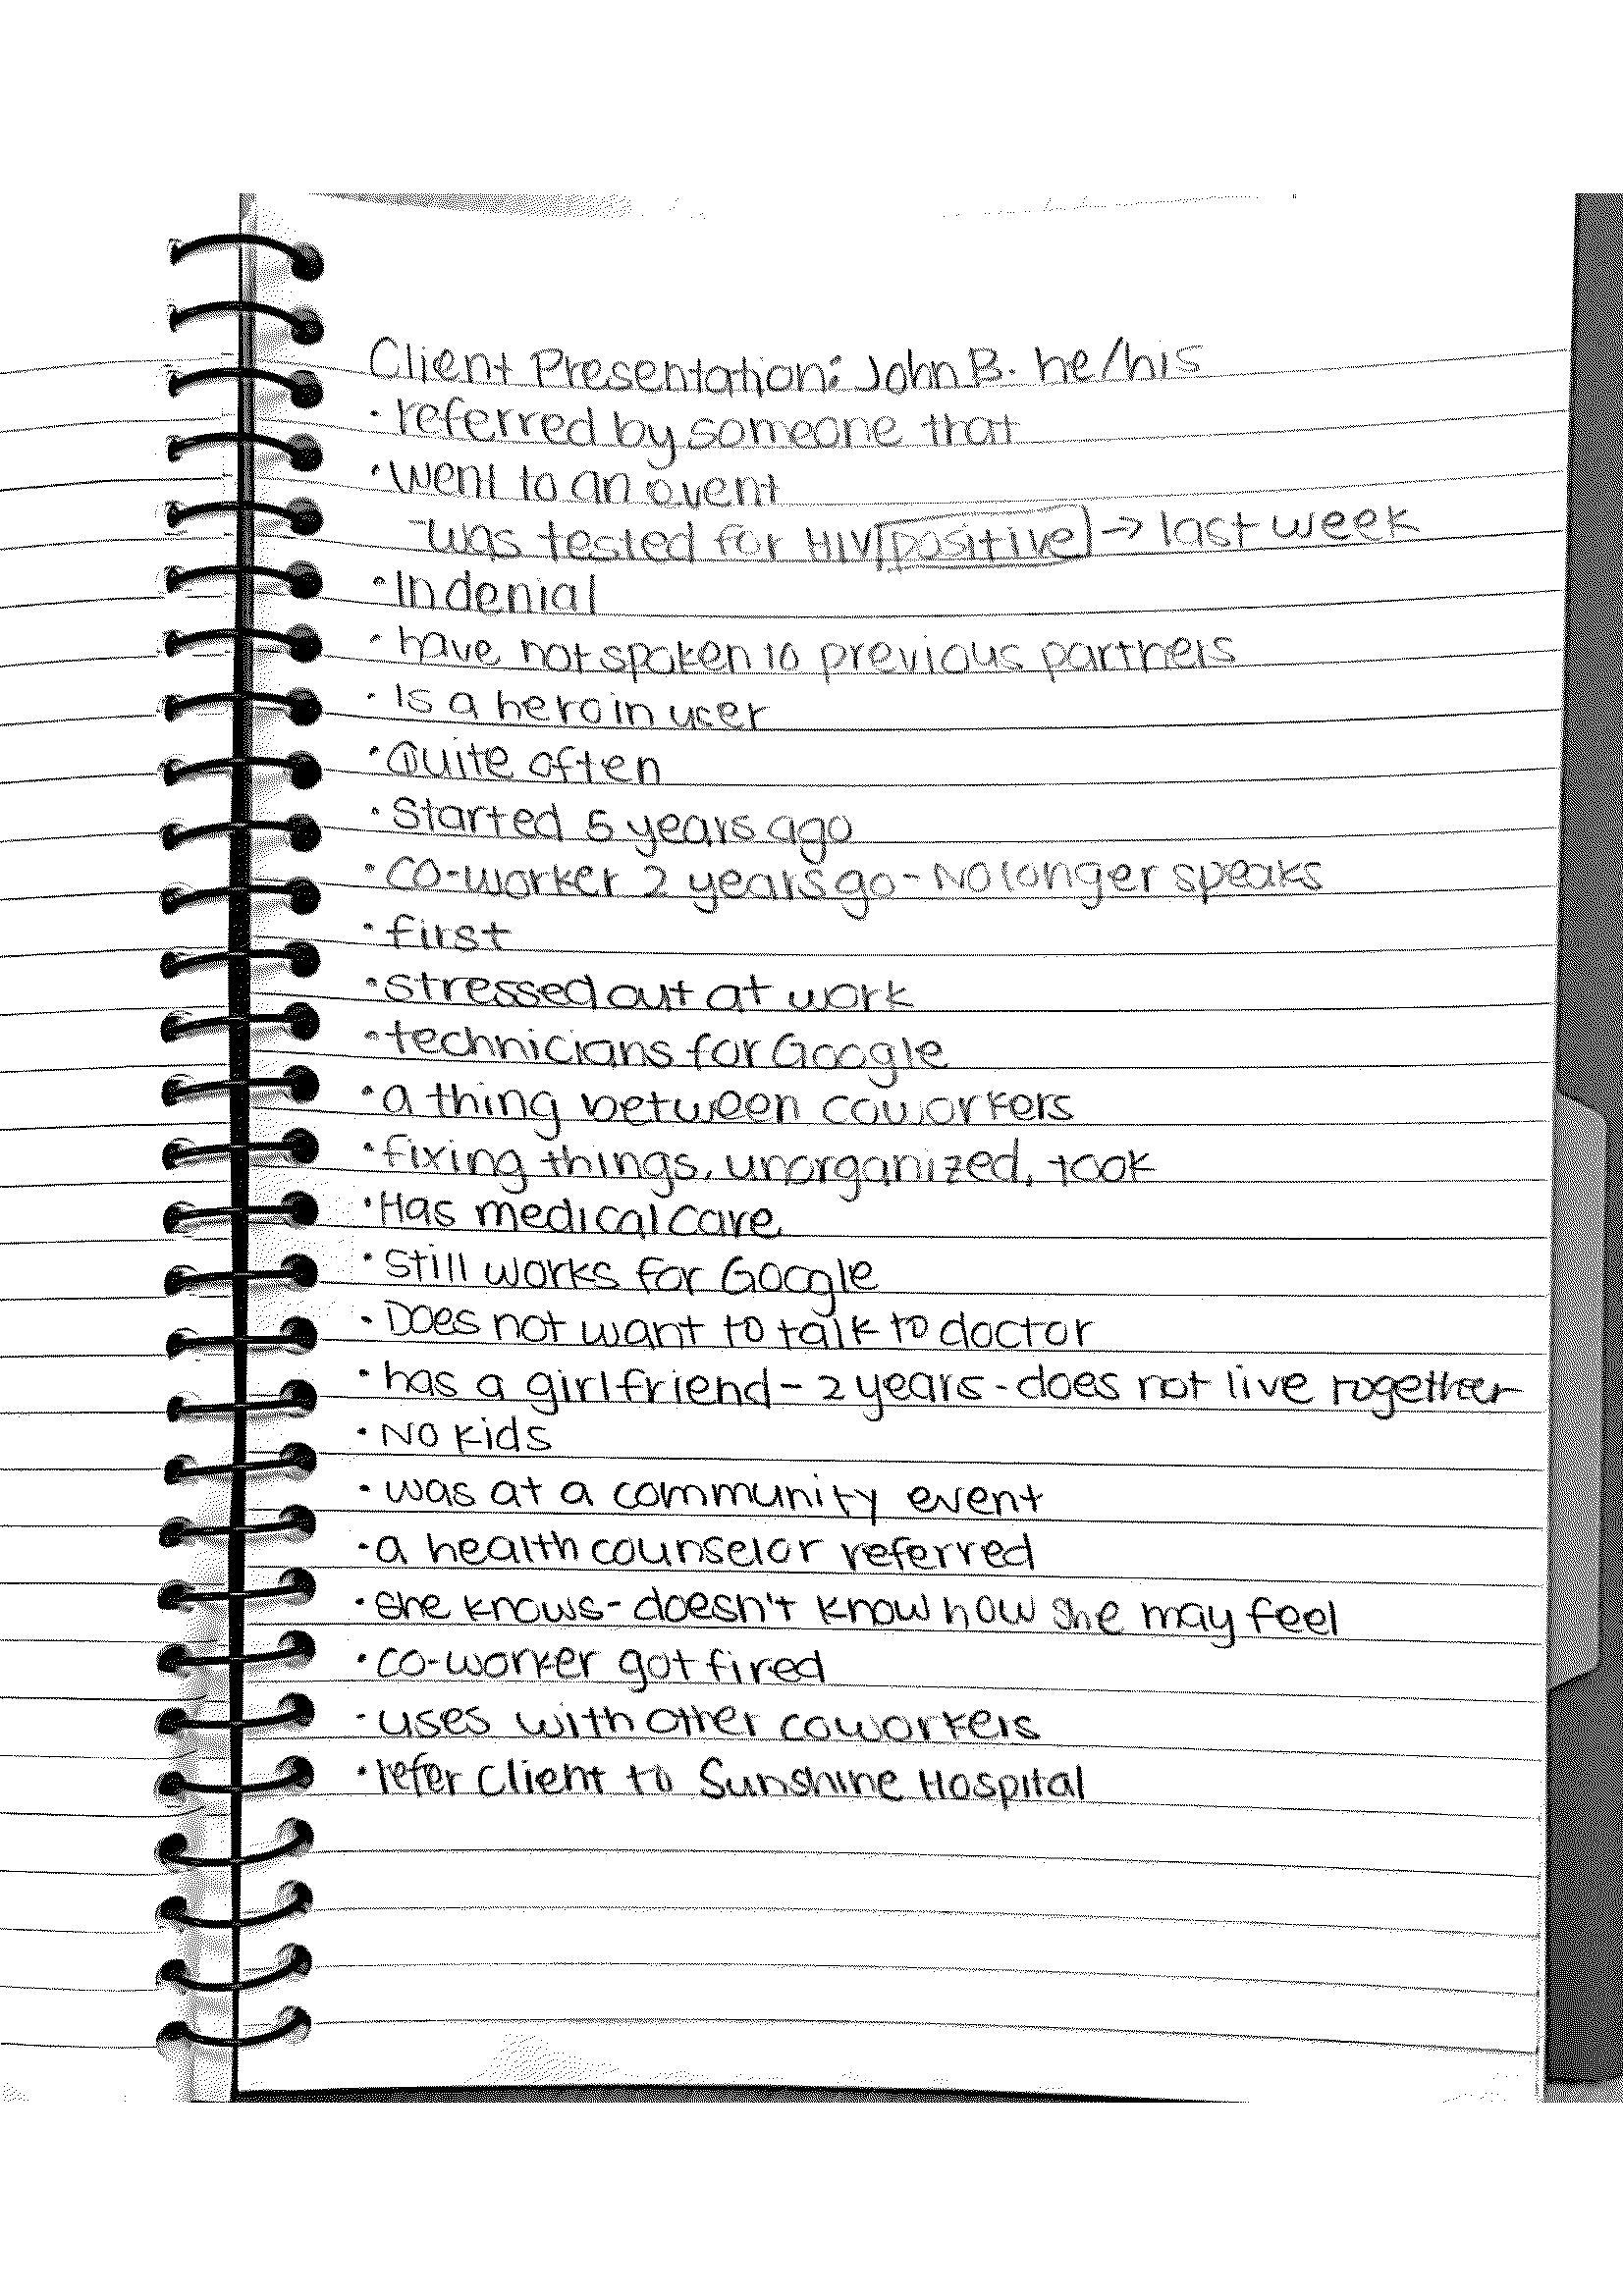 Client Presentation: John B. he/his
• referred by someone that
• went to an event
-was tested for HIV positive → last week
• In denial
• have not spoken to previous partners
• Is a heroin user
• Quite often
• Started 5 years ago
• co-worker 2 years go - No longer speaks
• first
• stressed out at work
• technicians for Google
• a thing between coworkers
• fixing things, unorganized, took
• Has medical care
• still works for Google
• Does not want to talk to doctor
• has a girlfriend - 2 years - does not live together
• No kids
• was at a community event
• a health counselor referred
• she knows - doesn't know how she may feel
• co-worker got fired
• uses with other coworkers
• refer Client to Sunshine Hospital